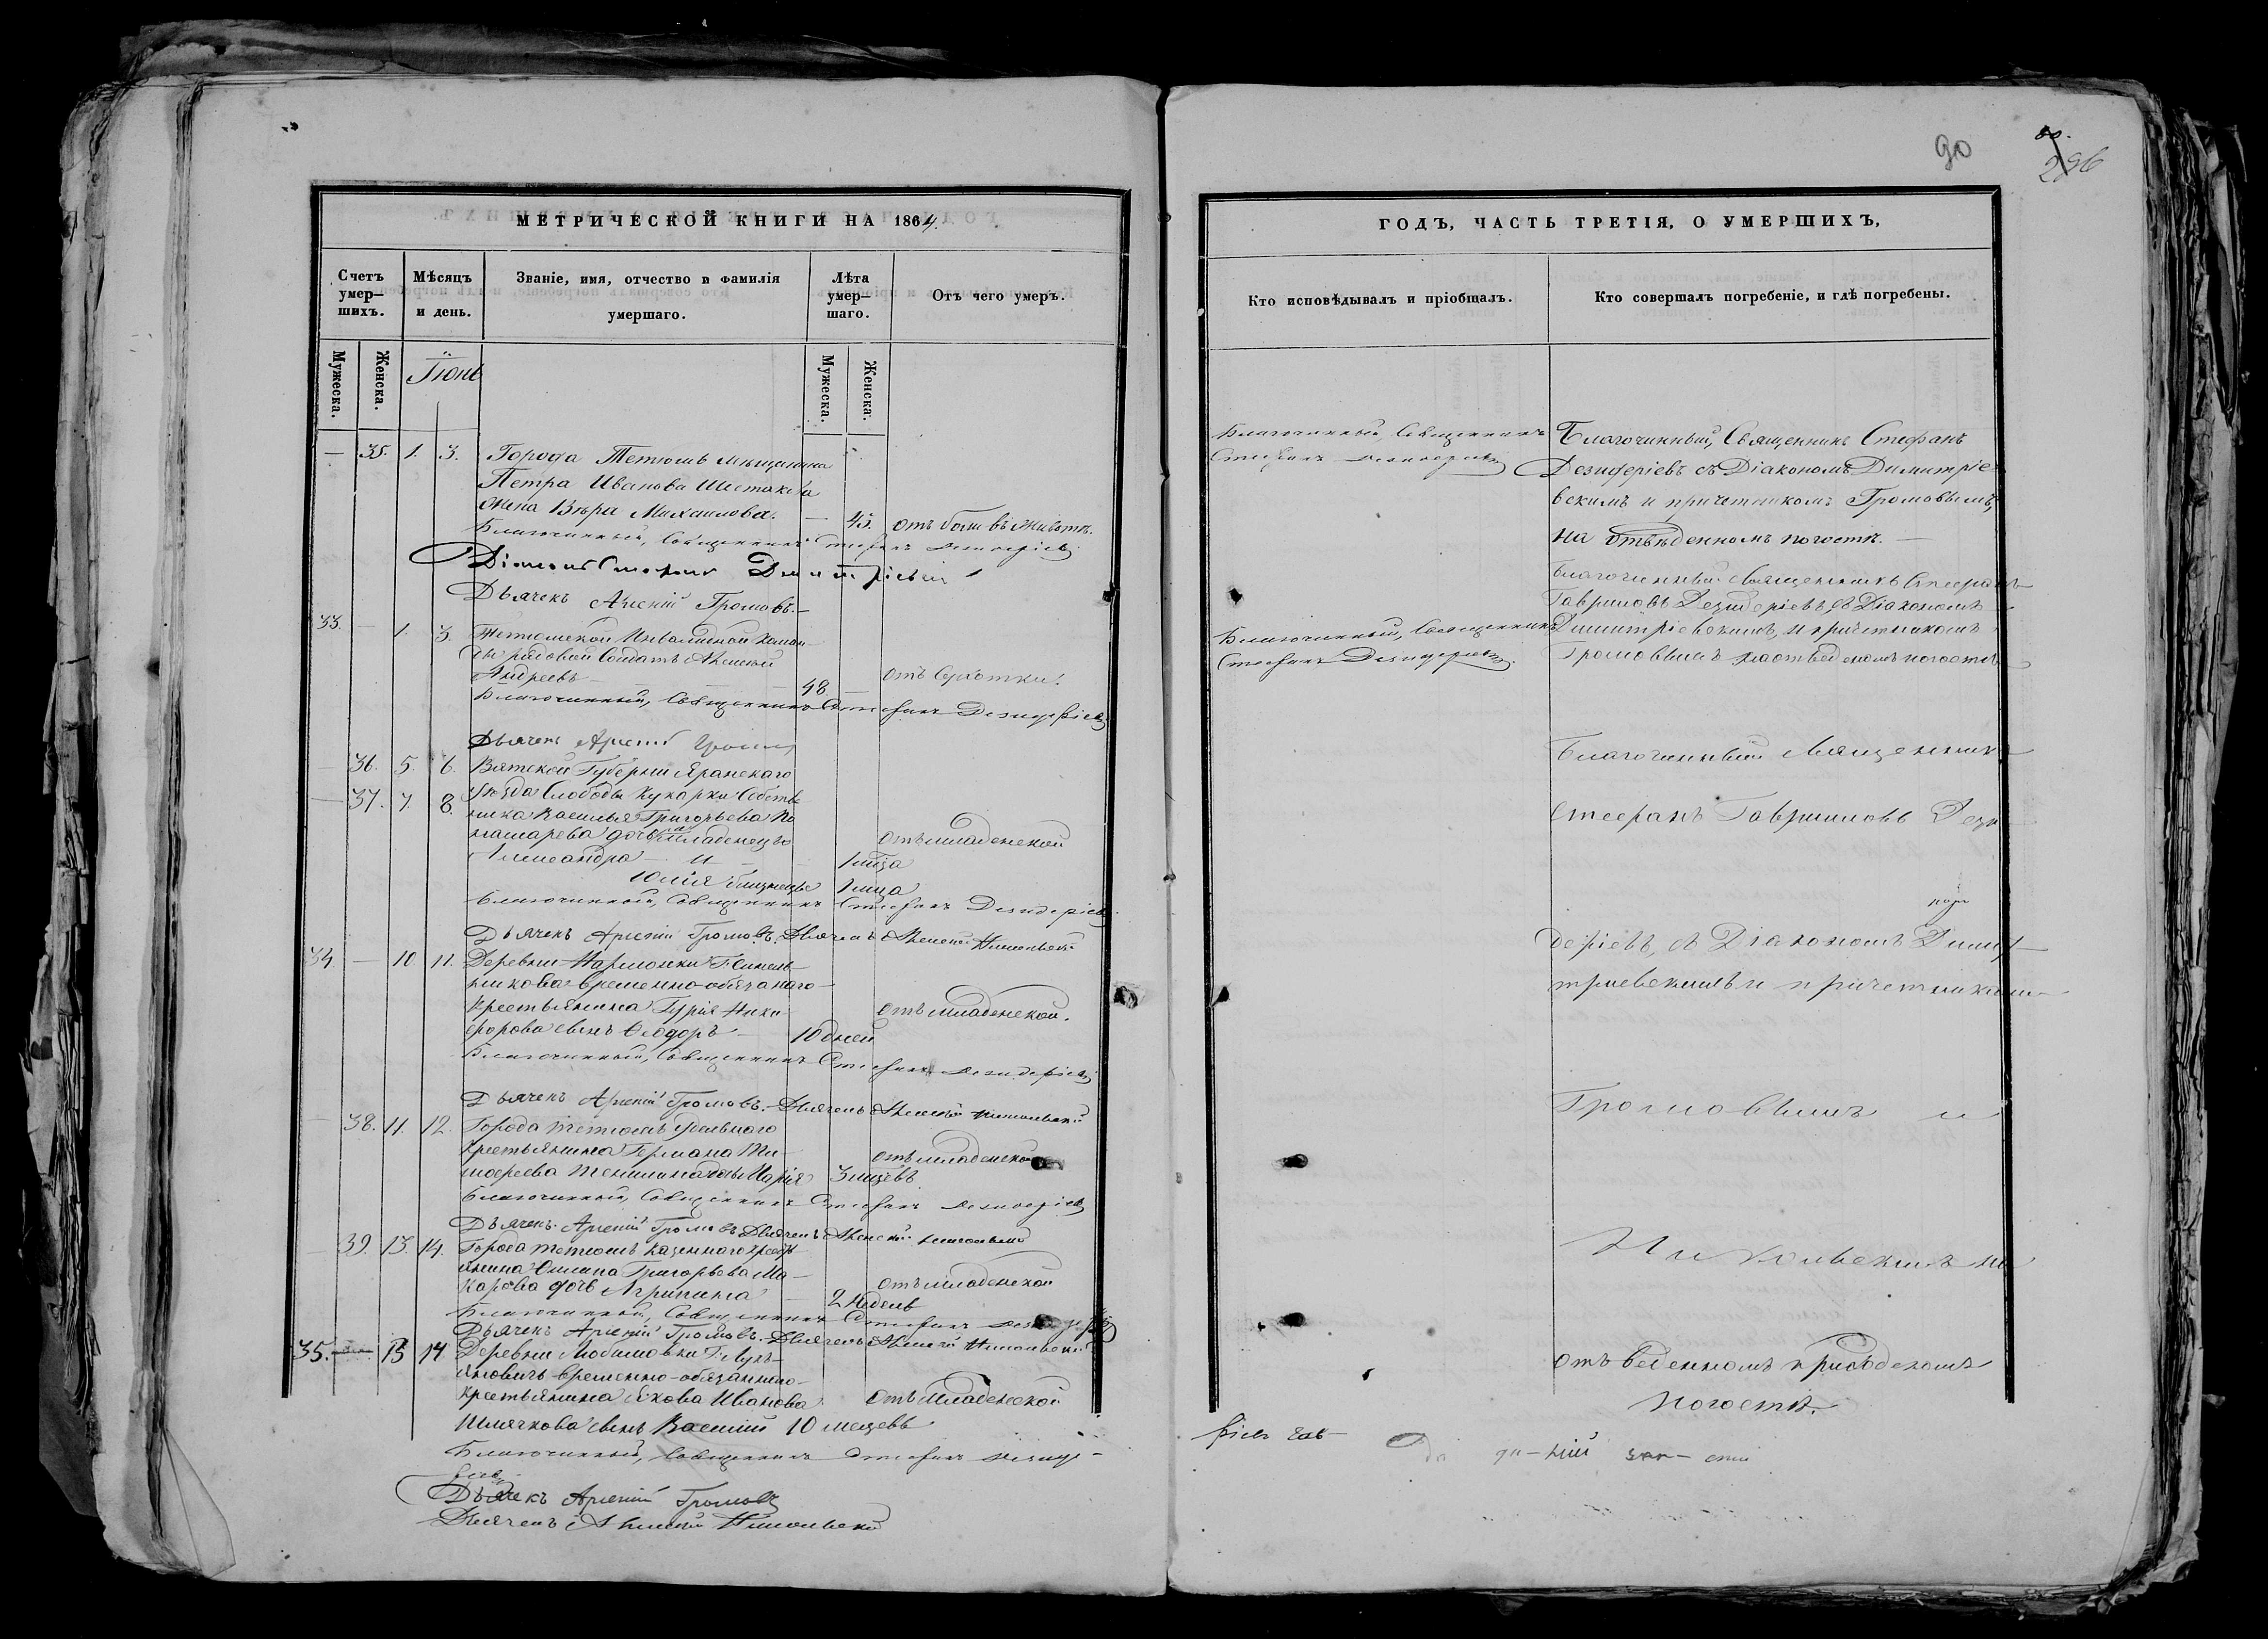 90
296
МЕТРИЧЕСКОЙ КНИГИ НА 1864.
Счетъ умер–шихъ.
Мѣсяцъ и день.
Званіе, имя, отчество и фамилія умершаго.
Лѣта умер–шаго.
Отъ чего умеръ.
Мужеска.
Женска.
Іюнь
Мужеска.
Женска.
— 35. 1. 3. Города Тетюшъ мѣщанина
Петра Иванова Шестакова
жена Вѣра Михаилова. — 45. отъ боли въ животѣ.
Благочинный, Священникъ Стефанъ Дезидеріевъ
Діаконъ Стефанъ Димитріевскій
Дьячекъ Арсеній Громовъ.
33. — 1. 3. Тетюшской Инвалидной коман–
ды рядовой Солдатъ Алексѣй
Андреевъ — 48. — отъ чахотки.
Благочинный, Священникъ Стефанъ Дезидеріевъ
Дьячекъ Арсеній Громовъ
— 36. 5. 6. Вятской Губерніи Яранскаго
— 37. 7. 8. Уѣзда Слободы Кукарки
Василья Григорьева
дочери младенецъ отъ младенской
Александра — и — 1 мѣсяца
Юлія близнецы 1 мѣсяца
Благочинный, Священникъ Стефанъ Дезидеріевъ
Дьячекъ Арсеній Громовъ. Дьячекъ Алексѣй Никольскій
34. — 10. 11. Деревни
временно-обязаннаго
Крестьянина Гурія Ники– отъ младенской.
форова сынъ Ѳеодоръ — 10 дней
Благочинный, Священникъ Стефанъ Дезидеріевъ
Дьячекъ Арсеній Громовъ. Дьячекъ Алексѣй Никольскій
— 38. 11. 12. Города Тетюшъ удѣльнаго
Крестьянина Германа Ти– отъ младенской
мофеева дочь Марія 3 мѣсяцевъ
Благочинный, Священникъ Стефанъ Дезидеріевъ
Дьячекъ Арсеній Громовъ. Дьячекъ Алексѣй Никольскій
39. 13. 14. Города Тетюшъ казеннаго кресть–
янина Григорьева Ма– отъ младенской
карова дочь Агрипина — 2 недѣль
Благочинный, Священникъ Стефанъ
Дьячекъ Арсеній Громовъ. Дьячекъ Алексѣй Никольскій
35. — 13 14 Деревни Любимовки
временно-обязаннаго
крестьянина Якова Иванова отъ младенской
сынъ Василій 10 мѣсяцевъ
Благочинный, Священникъ Стефанъ Дезиде–
ріевъ
Дьячекъ Арсеній Громовъ
Дьячекъ Алексѣй Никольскій
ГОДЪ, ЧАСТЬ ТРЕТІЯ, О УМЕРШИХЪ,
Кто исповѣдывалъ и пріобщалъ.
Кто совершалъ погребеніе, и гдѣ погребены.
Благочинный, Священникъ
Стефанъ Дезидеріевъ
Благочинный, Священникъ Стефанъ
Дезидеріевъ съ Діакономъ Димитріе–
вскимъ и причетникомъ Громовымъ,
на отведенномъ погостѣ. —
Благочинный, Священникъ
Стефанъ Дезидеріевъ.
Благочинный Священникъ Стефанъ
Гавриловъ Дезидеріевъ, съ Діакономъ
Димитріевскимъ, и причетникомъ
Громовымъ на отведеномъ погостѣ
Благочинный Священникъ
Стефанъ Гавриловъ Дези
деріевъ, съ Діакономъ Дими
тріевскимъ и причетниками
Громовымъ и
Никольскимъ на
отведенномъ приходскомъ
погостѣ.